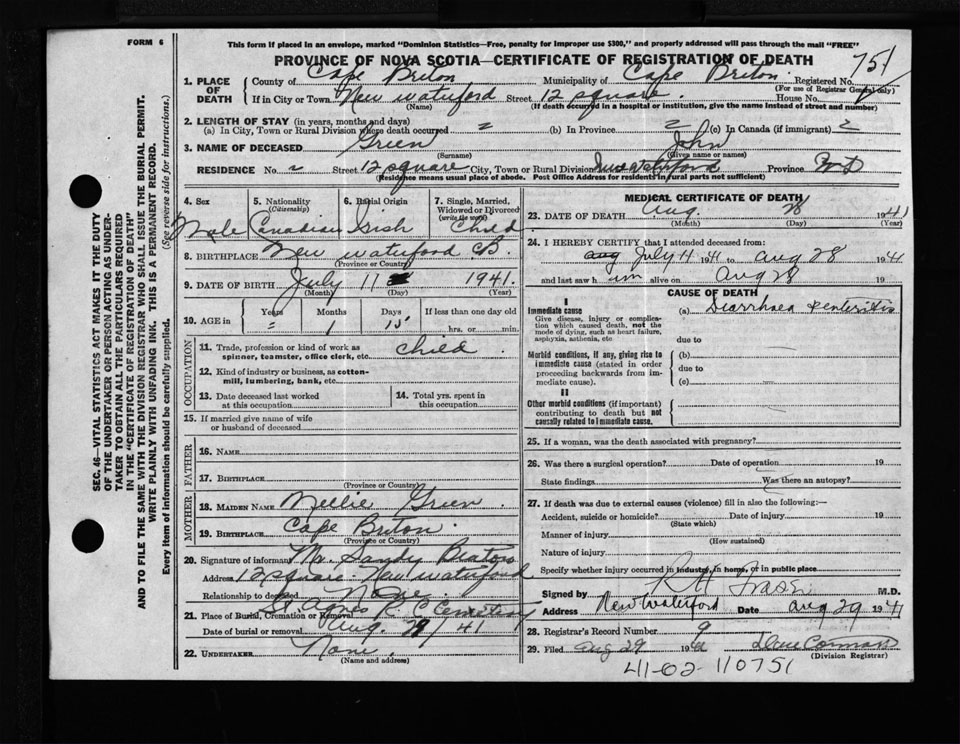 FORM 6
This form if placed in an envelope, marked "Dominion Statistics—Free, penalty for improper use $300," and properly addressed will pass through the mail "FREE"
PROVINCE OF NOVA SCOTIA—CERTIFICATE OF REGISTRATION OF DEATH
751
SEC. 46—VITAL STATISTICS ACT MAKES IT THE DUTY
OF THE UNDERTAKER OR PERSON ACTING AS UNDER-
TAKER TO OBTAIN ALL THE PARTICULARS REQUIRED
IN THE "CERTIFICATE OF REGISTRATION OF DEATH"
AND TO FILE THE SAME WITH THE DIVISION REGISTRAR WHO SHALL ISSUE THE BURIAL PERMIT.
WRITE PLAINLY WITH UNFADING INK. THIS IS A PERMANENT RECORD.
Every item of information should be carefully supplied. (See reverse side for instructions.)
1. PLACE OF DEATH
County of Cape Breton Municipality of Cape Breton Registered No.
(For use of Registrar General only)
If in City or Town New Waterford Street 12 square House No.
(Name) (If death occurred in a hospital or institution, give the name instead of street and number)
2. LENGTH OF STAY (in years, months and days)
(a) In City, Town or Rural Division where death occurred (b) In Province (c) In Canada (if immigrant)
3. NAME OF DECEASED Green John
(Surname) (Given name or names)
RESIDENCE No. Street 12 square City, Town or Rural Division New Waterford Province
(Residence means usual place of abode. Post Office Address for residents in rural parts not sufficient)
4. Sex Male
5. Nationality (Citizenship) Canadian
6. Racial Origin Irish
7. Single, Married, Widowed or Divorced (write the word) Child
8. BIRTHPLACE New Waterford C.B.
(Province or Country)
9. DATE OF BIRTH July 11 1941.
(Month) (Day) (Year)
10. AGE in Years Months Days If less than one day old
1 15 hrs. or min.
OCCUPATION
11. Trade, profession or kind of work as spinner, teamster, office clerk, etc. Child
12. Kind of industry or business, as cotton-mill, lumbering, bank, etc.
13. Date deceased last worked at this occupation
14. Total yrs. spent in this occupation
15. If married give name of wife or husband of deceased
FATHER
16. NAME
17. BIRTHPLACE
(Province or Country)
MOTHER
18. MAIDEN NAME Nellie Green
19. BIRTHPLACE Cape Breton
(Province or Country)
20. Signature of informant Mr. Sandy Beaton
Address 12 square New Waterford
Relationship to deceased None
21. Place of Burial, Cremation or Removal St. Agnes R C Cemetery
Date of burial or removal Aug. 29/41
22. UNDERTAKER None.
(Name and address)
MEDICAL CERTIFICATE OF DEATH
23. DATE OF DEATH Aug. 28 1941
(Month) (Day)
24. I HEREBY CERTIFY that I attended deceased from:
July 11 1941 to Aug 28 1941
and last saw him alive on Aug 28
CAUSE OF DEATH
I
Immediate cause
Give disease, injury or complication which caused death, not the mode of dying, such as heart failure, asphyxia, asthenia, etc
(a) Diarrhoea & enteritis
due to
Morbid conditions, if any, giving rise to immediate cause (stated in order proceeding backwards from immediate cause).
(b)
due to
(c)
II
Other morbid conditions (if important) contributing to death but not causally related to immediate cause.
25. If a woman, was the death associated with pregnancy?
26. Was there a surgical operation? Date of operation 19
State findings Was there an autopsy?
27. If death was due to external causes (violence) fill in also the following:—
Accident, suicide or homicide? Date of injury 19
(State which)
Manner of injury
(How sustained)
Nature of injury
Specify whether injury occurred in industry, in home, or in public place
Signed by M.D.
Address New Waterford Date Aug 29 1941
28. Registrar's Record Number 9
29. Filed Aug 29 19
(Division Registrar)
41-02-110751